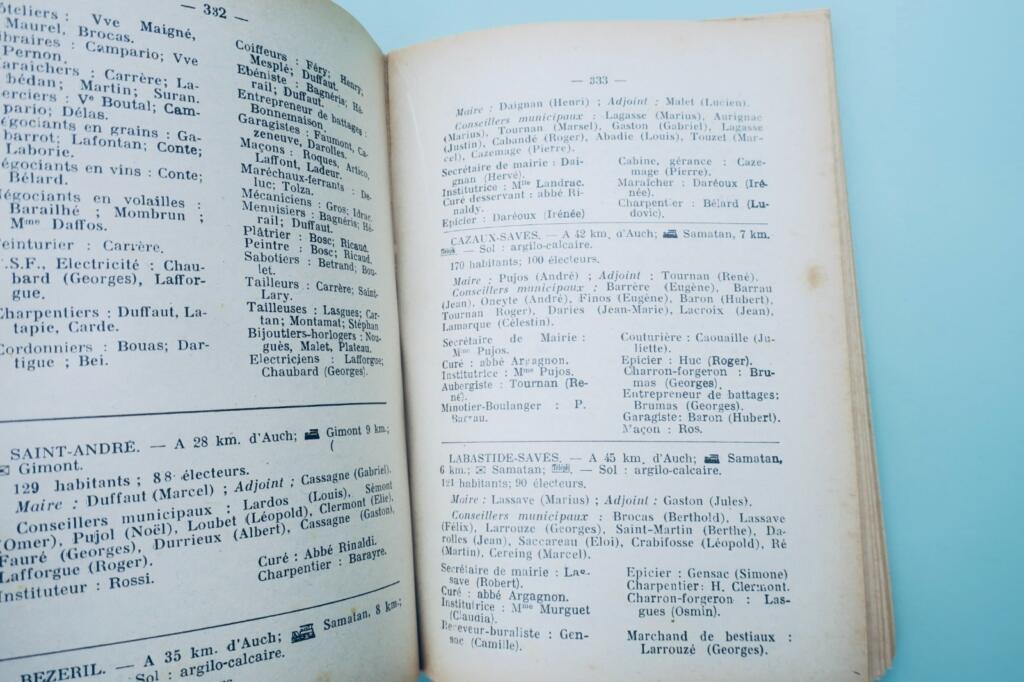 — 332 —
Vve Maigné,
Maurel, Brocas.
: Campario; Vve
Pernon.
Carrère; La-
bédan; Martin; Suran.
: Ve Boutal; Cam-
pario; Délas.
en grains : Ga-
barrot; Lafontan; Conte;
Laborie.
en vins : Conte;
Bélard.
Négociants en volailles :
Barailhé ; Mombrun ;
Mme Daffos.
: Carrère.
.S.F., Electricité : Chau-
bard (Georges), Laffor-
gue.
Charpentiers : Duffaut, La-
tapie, Carde.
Cordonniers : Bouas; Dar-
tigue ; Bei.
Coiffeurs : Féry; Henry,
Mesplé; Duffaut.
Ebéniste : Bagnéris; Hé-
rail; Duffaut.
Entrepreneur de battages :
Bonnemaison.
Garagistes : Faumont, Ca-
zeneuve, Darolles.
Maçons : Roques, Artico,
Laffont, Ladeur.
Maréchaux-ferrants : De-
luc; Tolza.
Mécaniciens : Gros; Idrac.
Menuisiers : Bagnéris; Hé-
rail; Duffaut.
Plâtrier : Bosc; Ricaud.
Peintre : Bosc; Ricaud.
Sabotiers : Betrand; Bou-
let.
Tailleurs : Carrère; Saint-
Lary.
Tailleuses : Lasgues; Car-
tan; Montamat; Stéphan
Bijoutiers-horlogers : Nou-
guès, Malet, Plateau.
Electriciens : Lafforgue;
Chaubard (Georges).
SAINT-ANDRE. — A 28 km. d'Auch; Gimont 9 km.;
Gimont.
129 habitants ; 88 électeurs.
Maire : Duffaut (Marcel) ; Adjoint : Cassagne (Gabriel).
Conseillers municipaux : Lardos (Louis), Sémont
(Omer), Pujol (Noël), Loubet (Léopold), Clermont (Elie),
Fauré (Georges), Durrieux (Albert), Cassagne (Gaston),
Lafforgue (Roger).
Instituteur : Rossi.
Curé : Abbé Rinaldi.
Charpentier : Barayre.
BEZERIL. — A 35 km. d'Auch; Samatan, 8 km.;
Sol : argilo-calcaire.
— 333 —
Maire : Daignan (Henri) ; Adjoint : Malet (Lucien).
Conseillers municipaux : Lagasse (Marius), Aurignac
(Marius), Tournan (Marsel), Gaston (Gabriel), Lagasse
(Justin), Cabandé (Roger), Abadie (Louis), Touzet (Mar-
cel), Cazemage (Pierre).
Secrétaire de mairie : Dai-
gnan (Hervé).
Institutrice : Mlle Landrac.
Curé desservant : abbé Ri-
naldy.
Epicier : Daréoux (Irénée)
Cabine, gérance : Caze-
mage (Pierre).
Maraîcher : Daréoux (Iré-
née).
Charpentier : Bélard (Lu-
dovic).
CAZAUX-SAVES. — A 42 km. d'Auch; Samatan, 7 km.
— Sol : argilo-calcaire.
170 habitants; 100 électeurs.
Maire : Pujos (André) ; Adjoint : Tournan (René).
Conseillers municipaux : Barrère (Eugène), Barrau
(Jean), Oneyte (André), Finos (Eugène), Baron (Hubert),
Tournan Roger), Daries (Jean-Marie), Lacroix (Jean),
Lamarque (Célestin).
Secrétaire de Mairie :
Mme Pujos.
Curé : abbé Argagnon.
Institutrice : Mme Pujos.
Aubergiste : Tournan (Re-
né).
Minotier-Boulanger : P.
Barrau.
Couturière : Caouaille (Ju-
liette).
Epicier : Huc (Roger).
Charron-forgeron : Bru-
mas (Georges).
Entrepreneur de battages:
Brumas (Georges).
Garagiste: Baron (Hubert).
Maçon : Ros.
LABASTIDE-SAVES. — A 45 km. d'Auch; Samatan,
6 km.; Samatan; — Sol : argilo-calcaire.
121 habitants; 90 électeurs.
Maire : Lassave (Marius) ; Adjoint : Gaston (Jules).
Conseillers municipaux : Brocas (Berthold), Lassave
(Félix), Larrouze (Georges), Saint-Martin (Berthe), Da-
rolles (Jean), Saccareau (Eloi), Crabifosse (Léopold), Ré
(Martin), Cereing (Marcel).
Secrétaire de mairie :
save (Robert).
Curé : abbé Argagnon.
Institutrice : Mme Murguet
(Claudia).
Receveur-buraliste : Gen-
sac (Camille).
Epicier : Gensac (Simone)
Charpentier: H. Clermont.
Charron-forgeron : Las-
gues (Osmin).
Marchand de bestiaux :
Larrouzé (Georges).